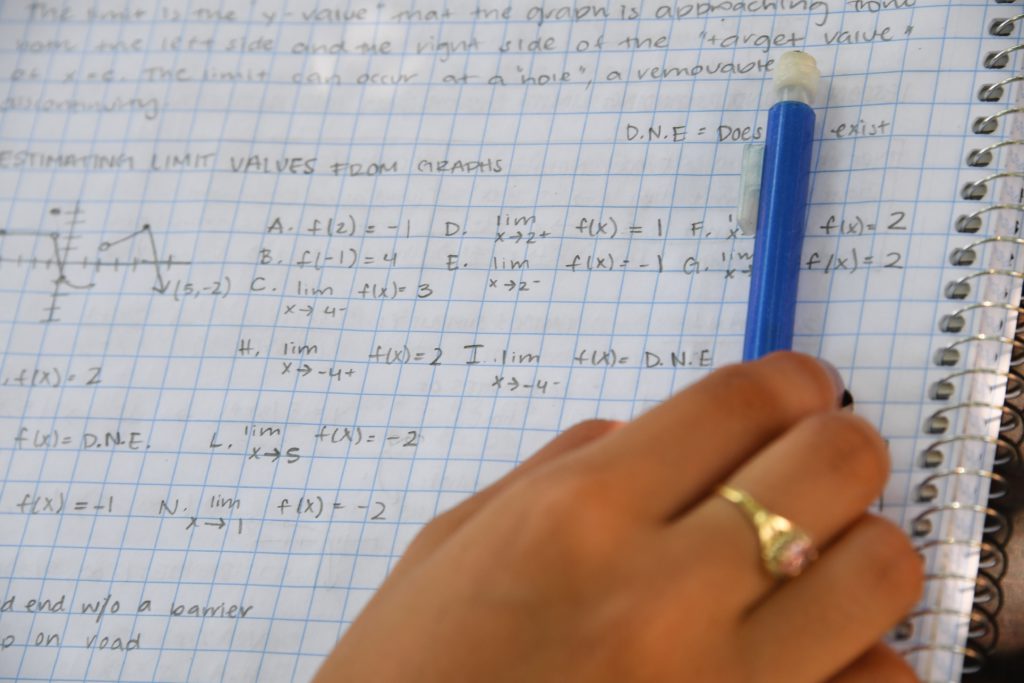 The limit is the "y-value" that the graph is approaching from
from the left side and the right side of the "target value"
of x=c. The limit can occur at a "hole", a removable
discontinuity.
D.N.E = Does exist
ESTIMATING LIMIT VALUES FROM GRAPHS
A. f(2) = -1 D. lim x→2+ f(x) = 1 F. f(x) = 2
B. f(-1) = 4 E. lim x→2- f(x) = -1 G. lim f(x) = 2
(5,-2) C. lim x→4- f(x) = 3
H. lim x→-4+ f(x) = 2 I. lim x→-4- f(x) = D.N.E
f(x) = 2
f(x) = D.N.E. L. lim x→5 f(x) = -2
f(x) = -1 N. lim x→1 f(x) = -2
d end w/o a barrier
on road